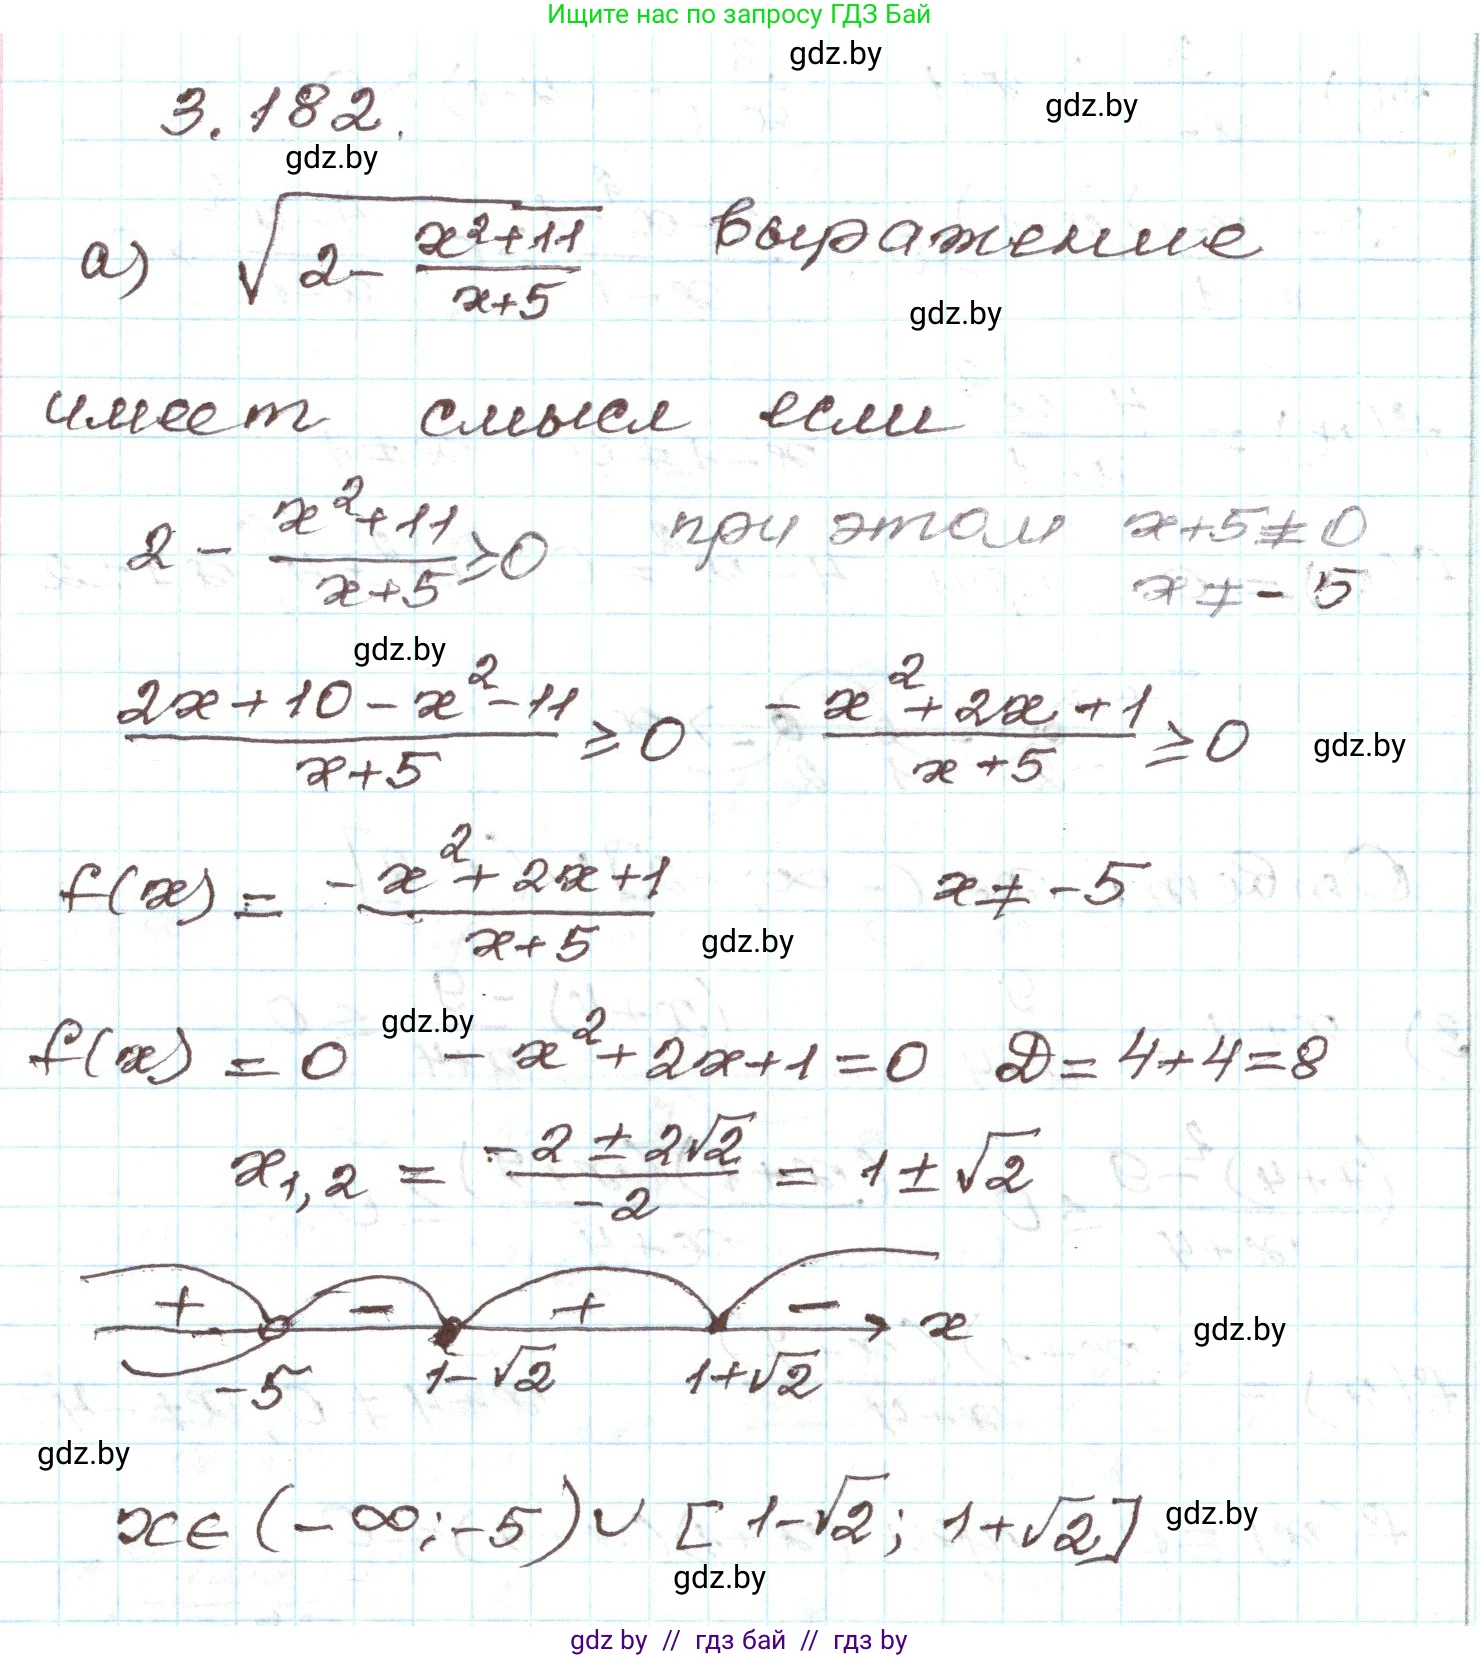 Ищите нас по запросу ГДЗ Бай
gdz.by
3.182.
gdz.by
gdz.by
а) √(2 - (x²+11)/(x+5)) выражение
gdz.by
имеет смысл если
2 - (x²+11)/(x+5) ≥ 0 при этом x+5≠0
x≠-5
gdz.by
(2x+10-x²-11)/(x+5) ≥ 0 (-x²+2x+1)/(x+5) ≥ 0
gdz.by
f(x) = (-x²+2x+1)/(x+5) x≠-5
gdz.by
gdz.by
f(x) = 0 -x²+2x+1=0 D=4+4=8
x₁,₂ = (-2±2√2)/(-2) = 1±√2
+ - + - x
gdz.by
-5 1-√2 1+√2
gdz.by
x∈(-∞;-5)∪[1-√2; 1+√2]
gdz.by
gdz.by
gdz by // гдз бай // гдз by